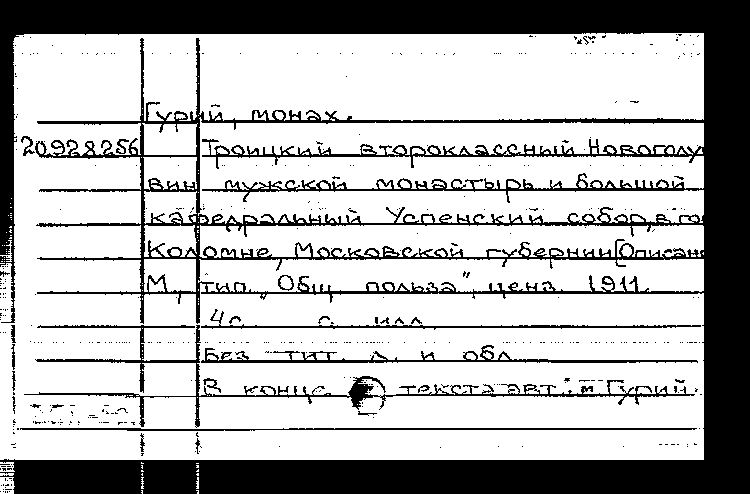 Гурий, монах.
20928256 Троицкий второклассный Новоголу
вин мужской монастырь и большой
кафедральный Успенский собор, в го
Коломне, Московской губернии [Описан
М., тип. "Общ. польза", ценз. 1911.
4 с. с илл.
Без тит. л. и обл.
В конце текста авт.: м. Гурий.